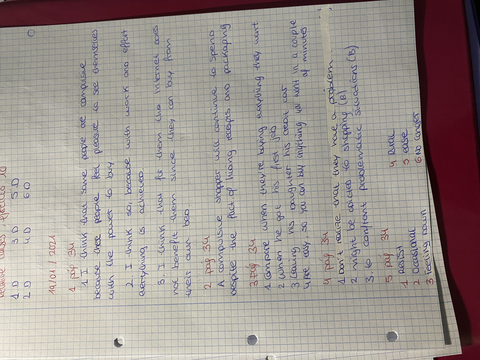 1 D 3 D 5 D
2 D 4 D 6 D
19/01/2021
1 pag 34
1. I think that some people are compulsive
because these people feel people to see themselves
with the power to buy
2. I think so, because with work and effort
everything is achieved
3. I think that for them the Internet does
not benefit them since they can buy from
their own
2 pag 34
A compulsive shopper will continue to spend
despite the fact of hiding receipts and packaging
3 pag 34
1 compare when they're buying everything they want
2 when he got his first job
3 Leaving his daughter his credit card
4 Are easy, so you can buy anything you want in a couple
of minutes
4 pag 34
1 Don't realise that they have a problem
2 might be addicted to shopping (B)
3. to confront problematic situations (B)
5 pag 34
1 Resist 4 Rural
2 Occasional 5 ease
3 feeling down 6 No longer